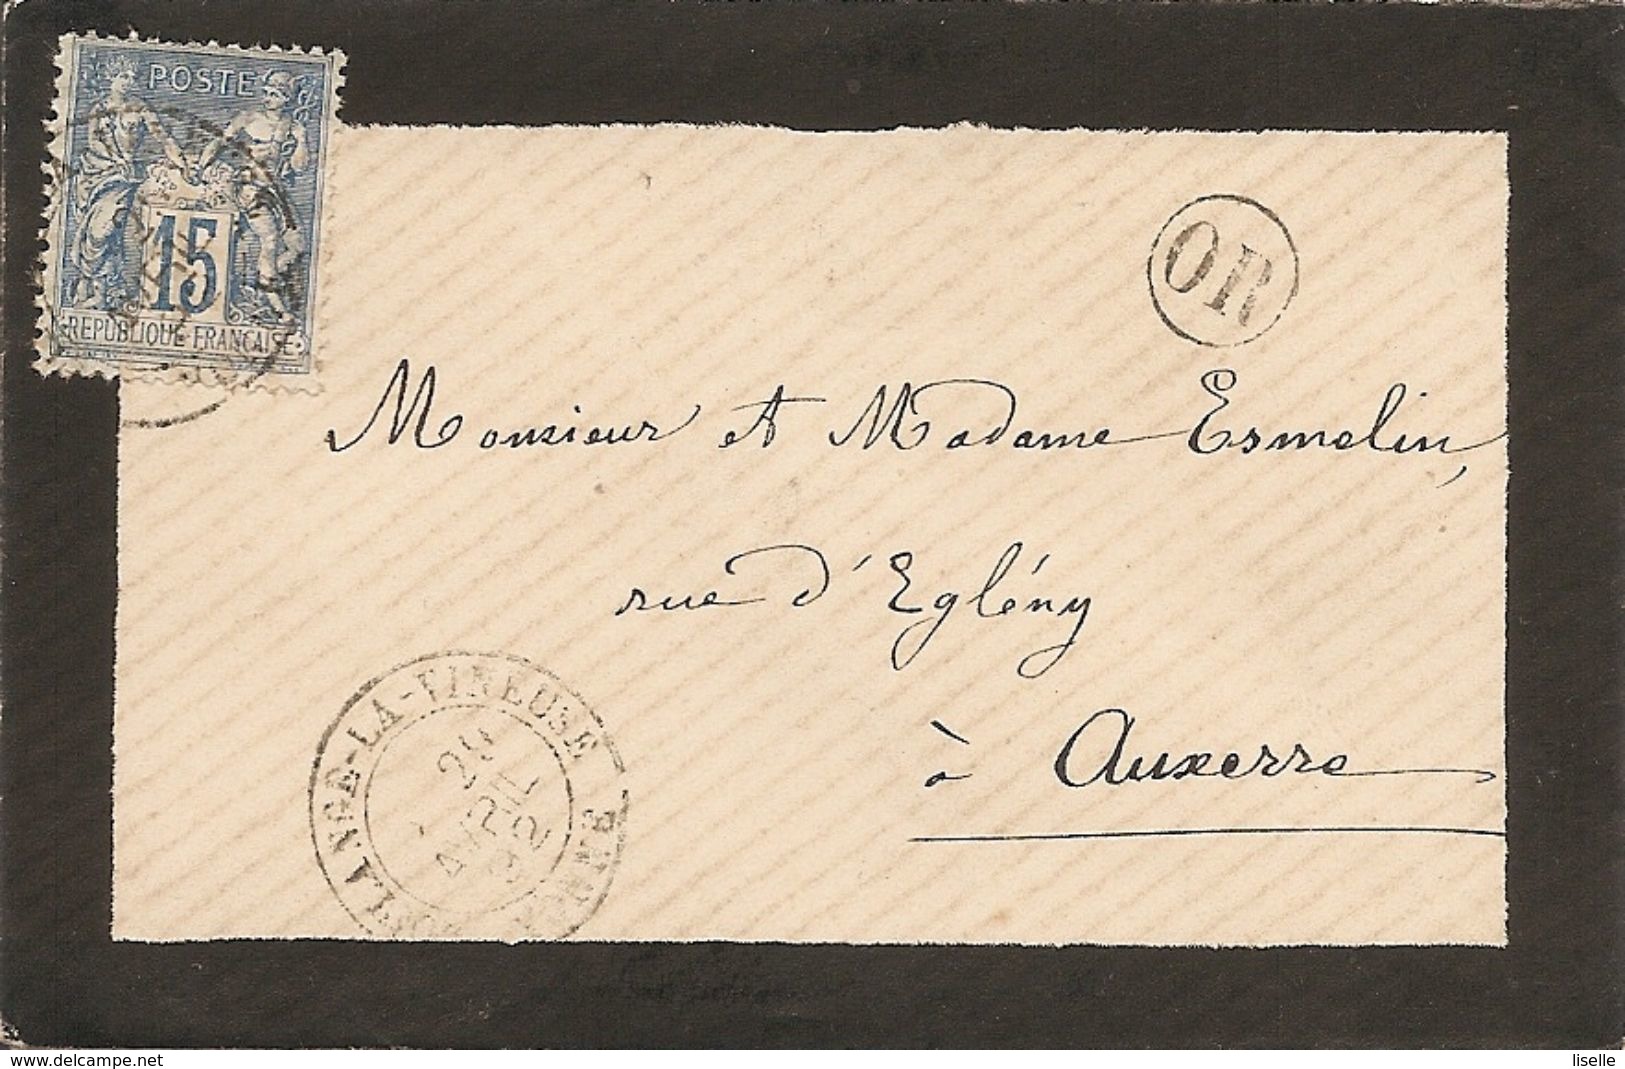 POSTE
15
REPUBLIQUE FRANCAISE
OR
Monsieur et Madame Esmelin,
rue d'Eglény
à Auxerre
COULANGE-LA-VINEUSE
AVRIL
YONNE
delcampe.net
liselle